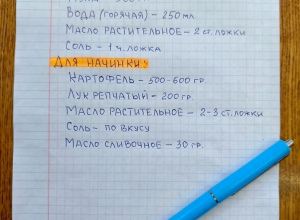 Вода (горячая) – 250 мл.
Масло растительное – 2 ст. ложки
Соль – 1 ч. ложка
Для начинки:
Картофель – 500-600 гр.
Лук репчатый – 200 гр.
Масло растительное – 2-3 ст. ложки
Соль – по вкусу
Масло сливочное – 30 гр.